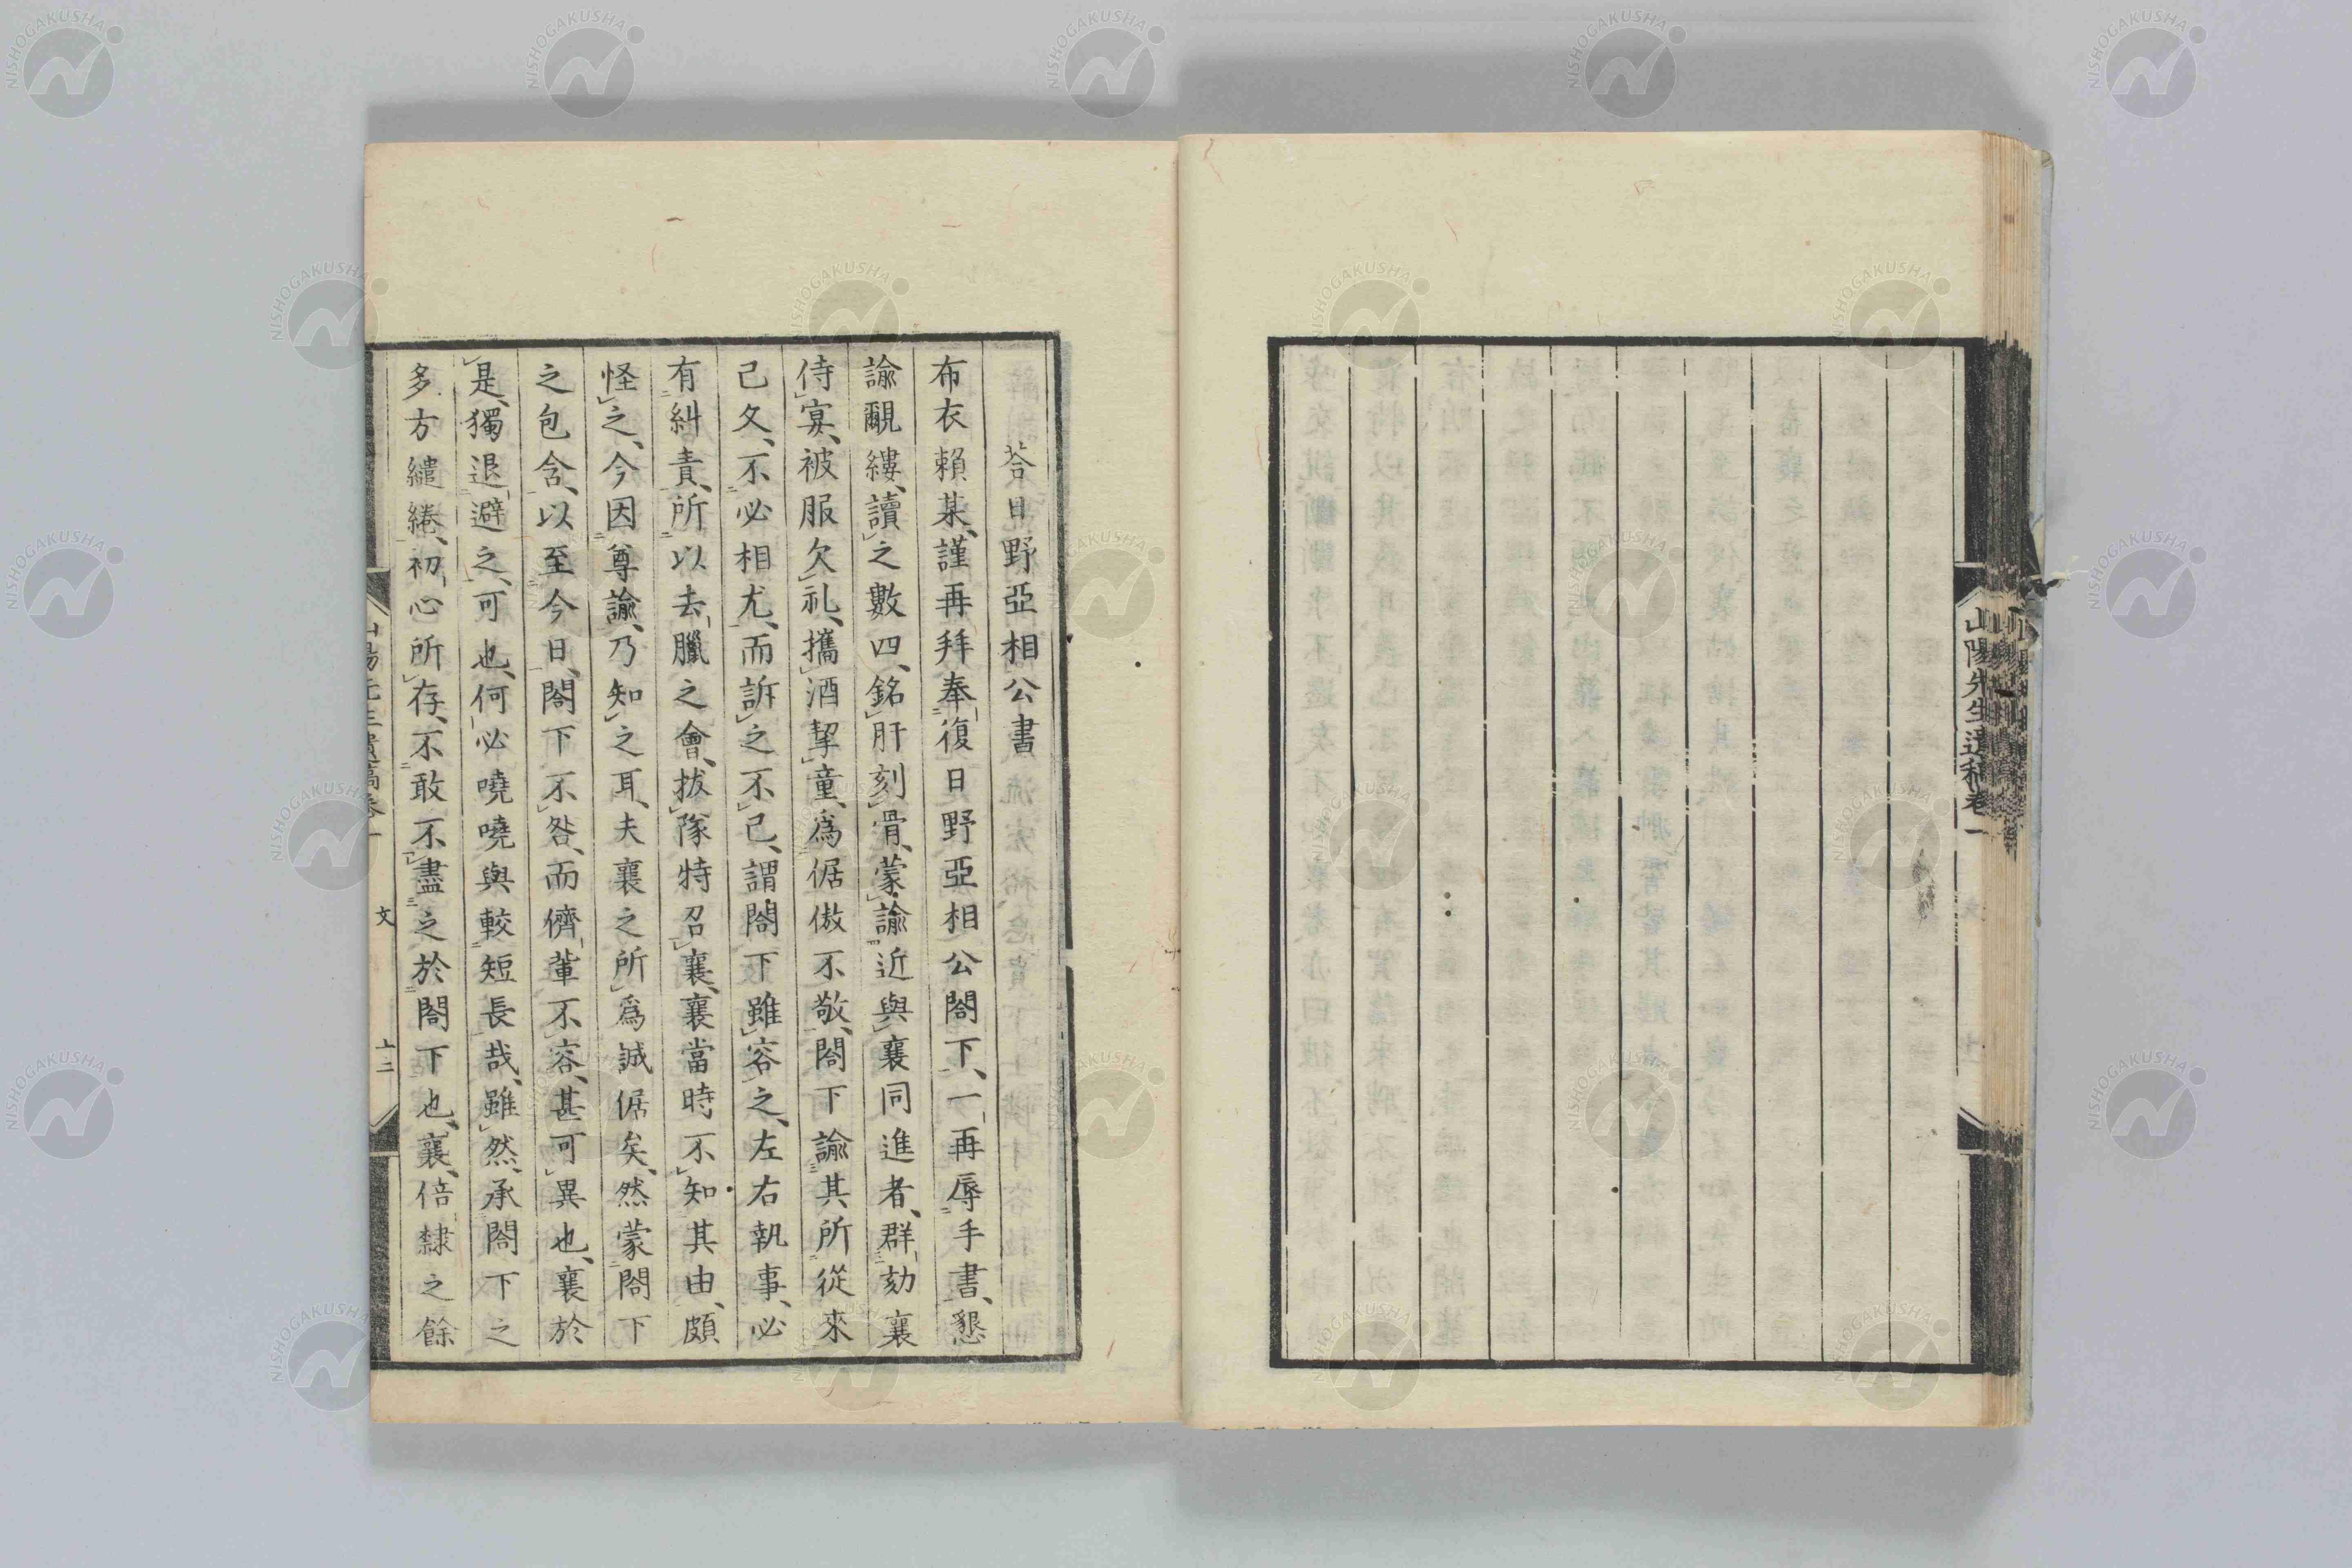 山陽先生遺稿卷一
荅日野亞相公書
布衣賴某、謹再拜奉復日野亞相公閤下、一再辱手書、懇
諭覼縷、讀之數四、銘肝刻骨、蒙諭近與襄同進者、群劾襄
侍宴、被服欠礼、攜酒挈童、爲倨傲不敬、閤下諭其所從來
已久、不必相尤、而訴之不已、謂閤下雖容之、左右執事、必
有糾責、所以去臘之會、拔隊特召襄、襄當時不知其由、頗
怪之、今因尊諭、乃知之耳、夫襄之所爲誠倨矣、然蒙閤下
之包含、以至今日、閤下不咎、而儕輩不容、甚可異也、襄於
是、獨退避之、可也、何必嘵嘵與較短長哉、雖然、承閤下之
多方繾綣、初心所存、不敢不盡之於閤下也、襄、倍隸之餘
山陽先生遺稿卷一
文
十二
NISHOGAKUSHA